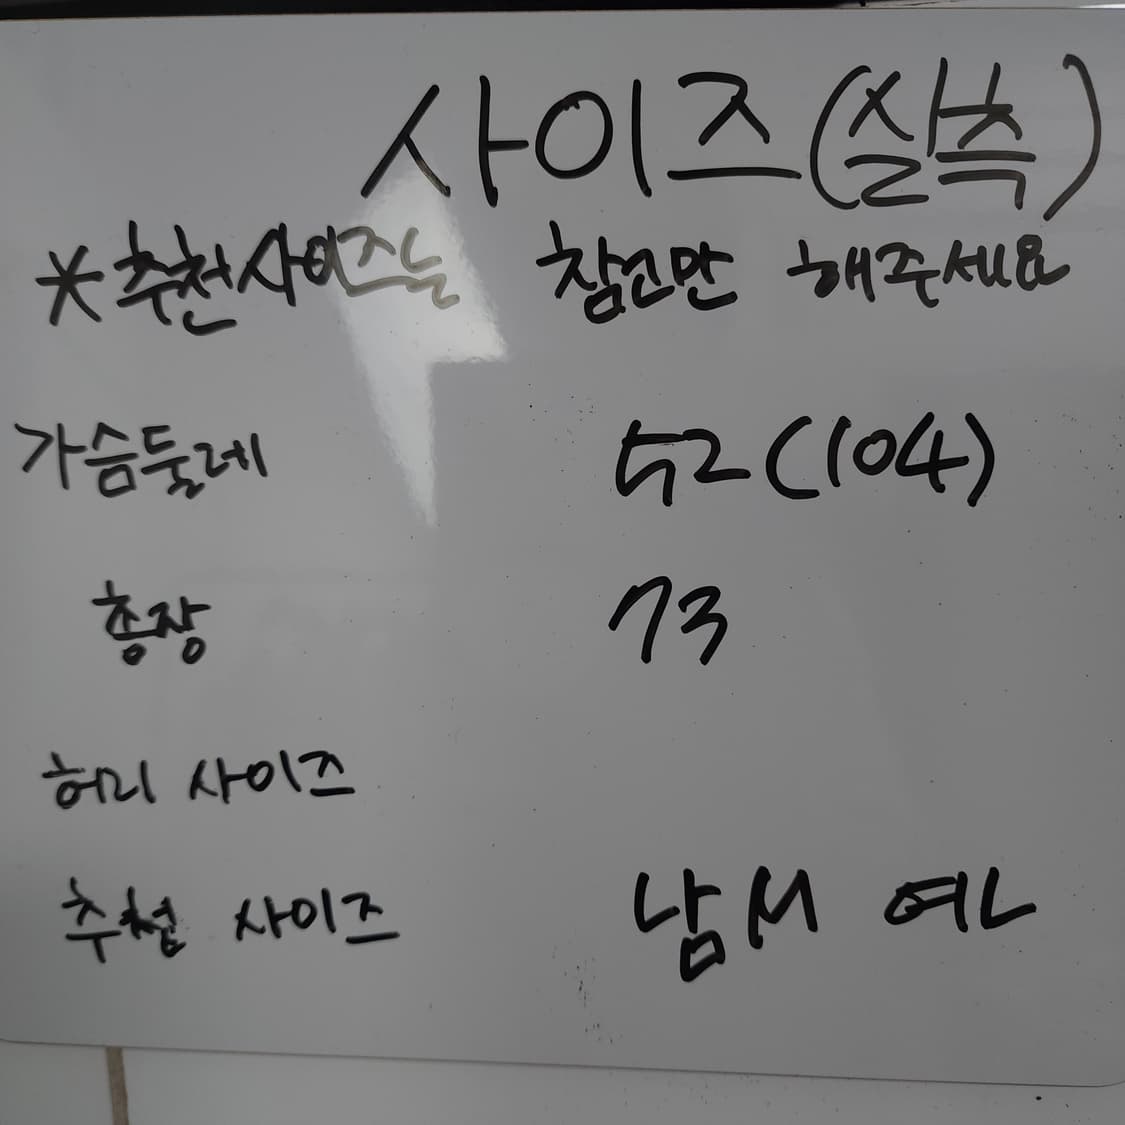 사이즈(실측)
*추천사이즈는 참고만 해주세요
가슴둘레 52(104)
총장 73
허리 사이즈
추천 사이즈 남M 여L